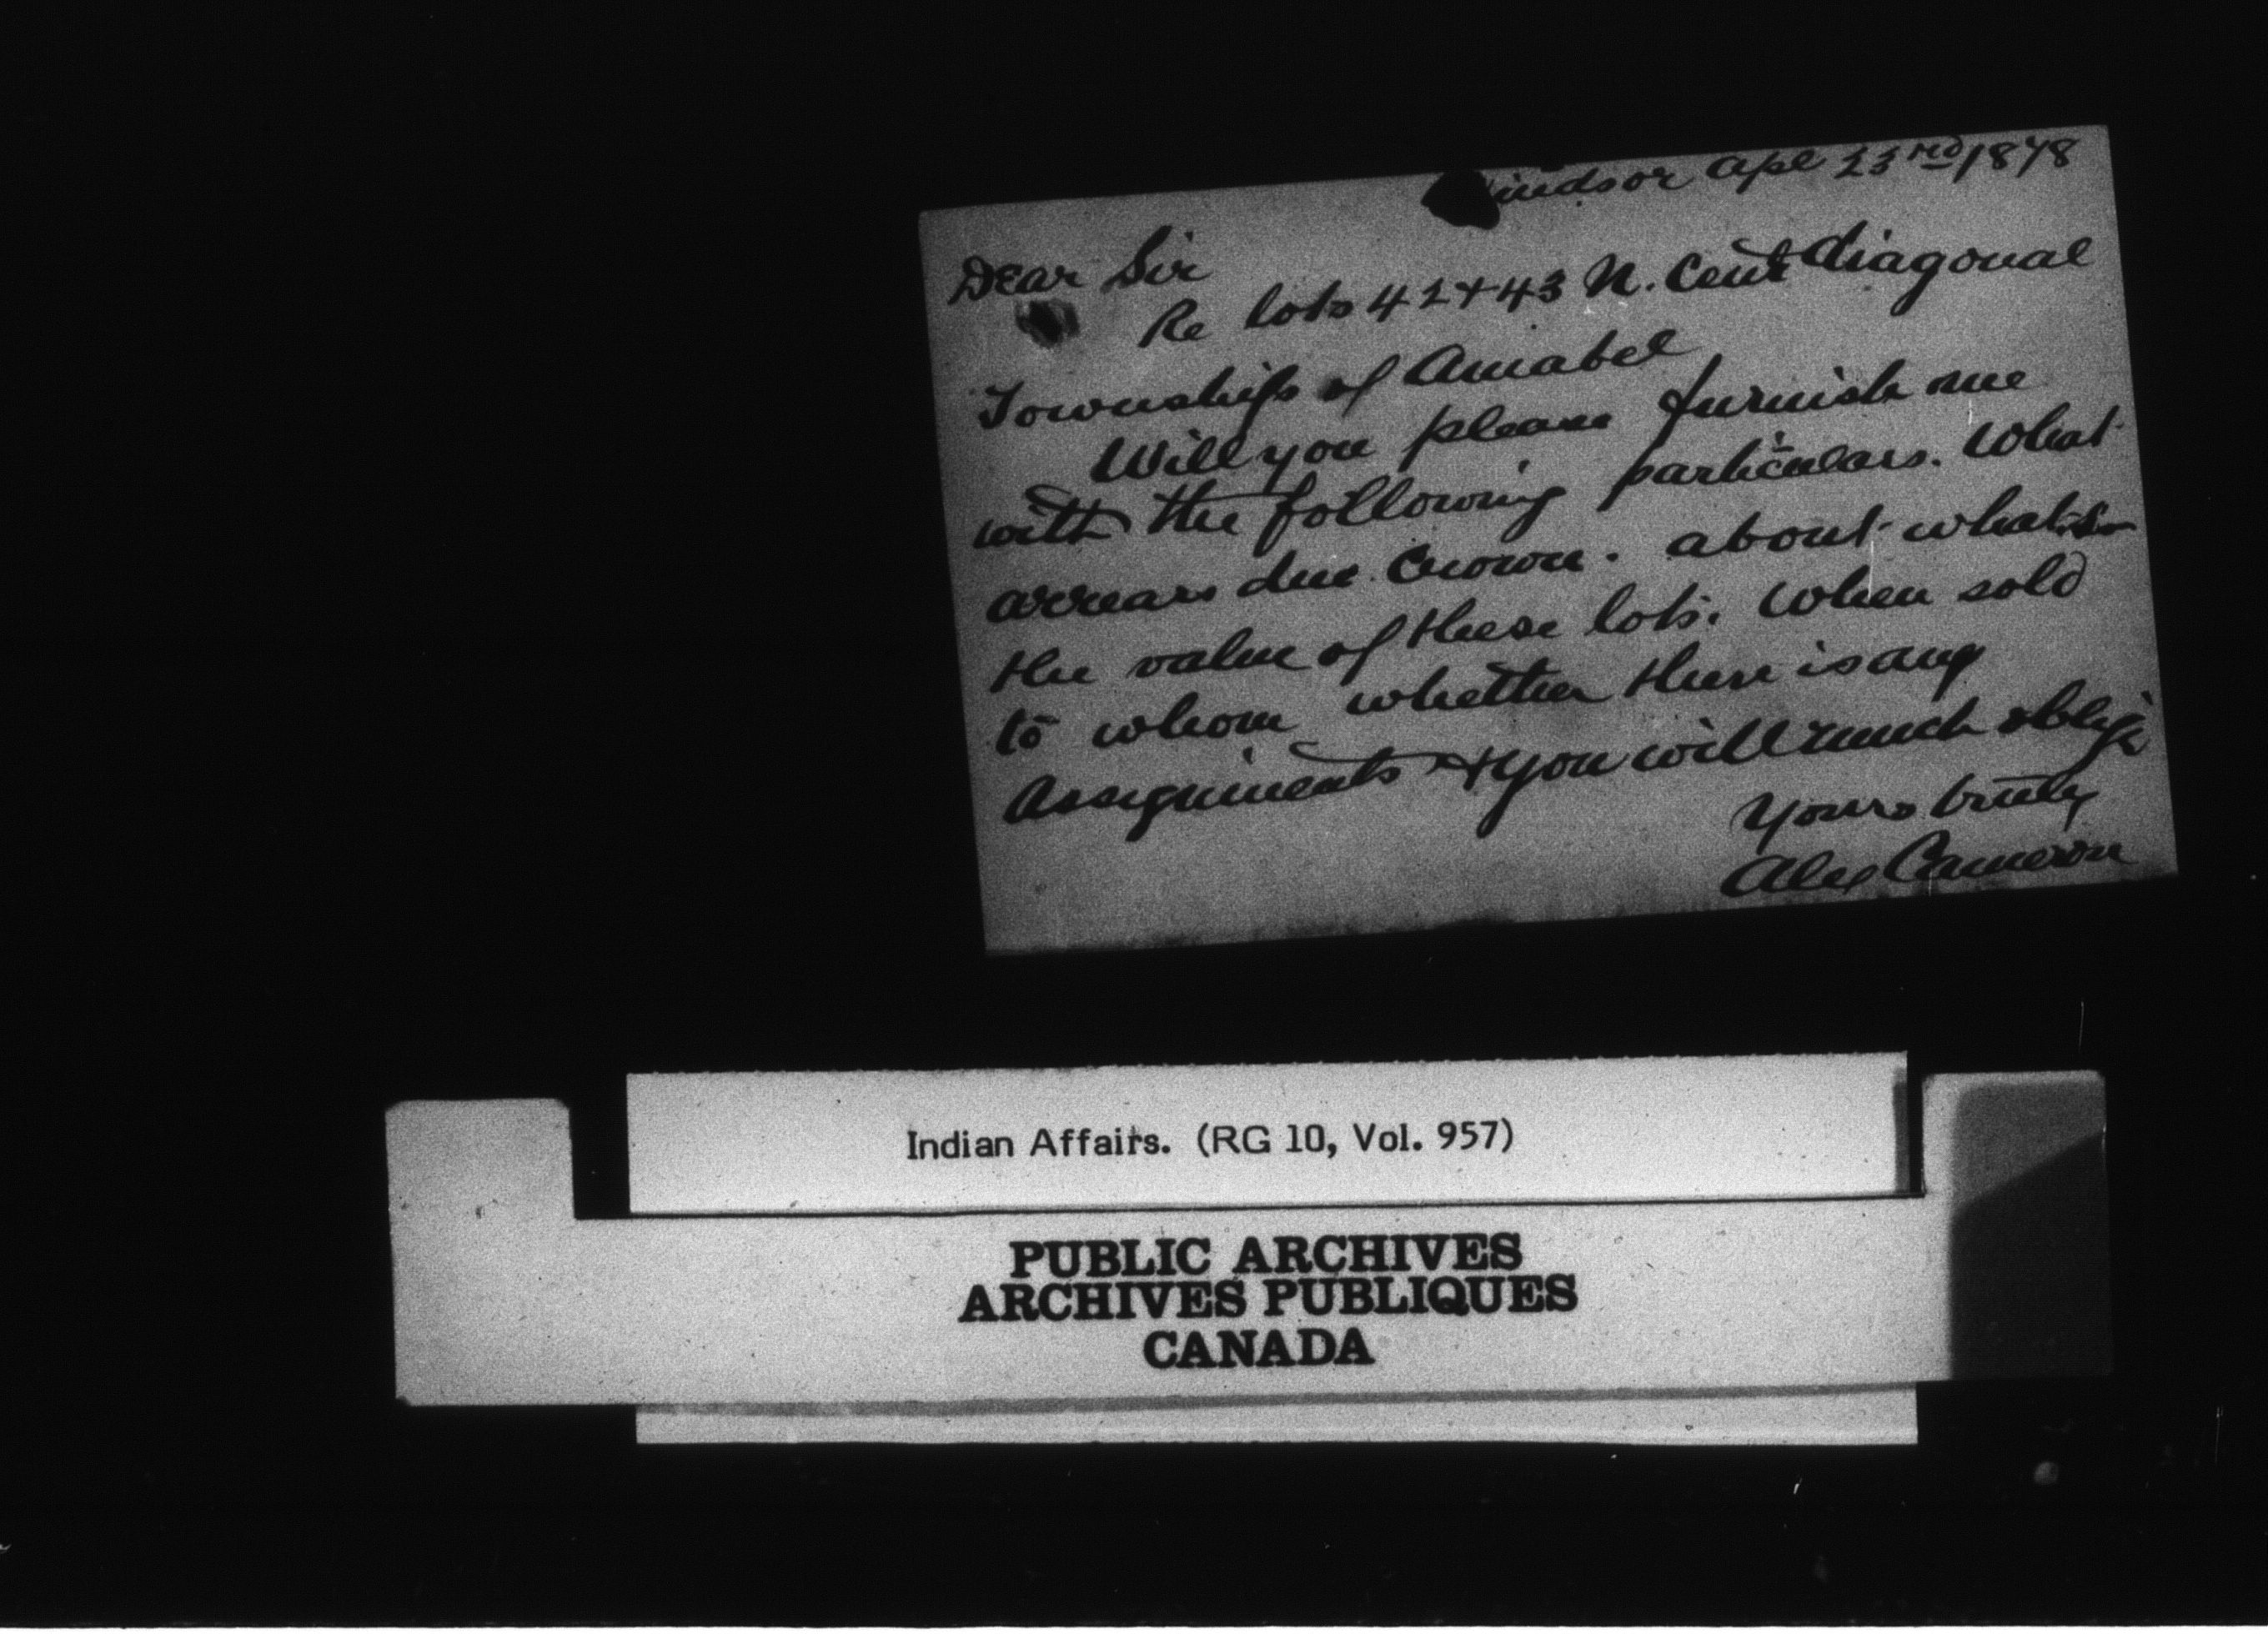 indsor Apl 23rd 1878
Dear Sir
Re lots 42 & 43 N. Cent Diagonal
Township of Amabel
Will you please furnish me
with the following particulars. What
arrears due Crown. about what is
the value of these lots. When sold
to whom whether there is any
Assignments & you will much oblige
Yours truly
Alex Cameron
Indian Affairs. (RG 10, Vol. 957)
PUBLIC ARCHIVES
ARCHIVES PUBLIQUES
CANADA